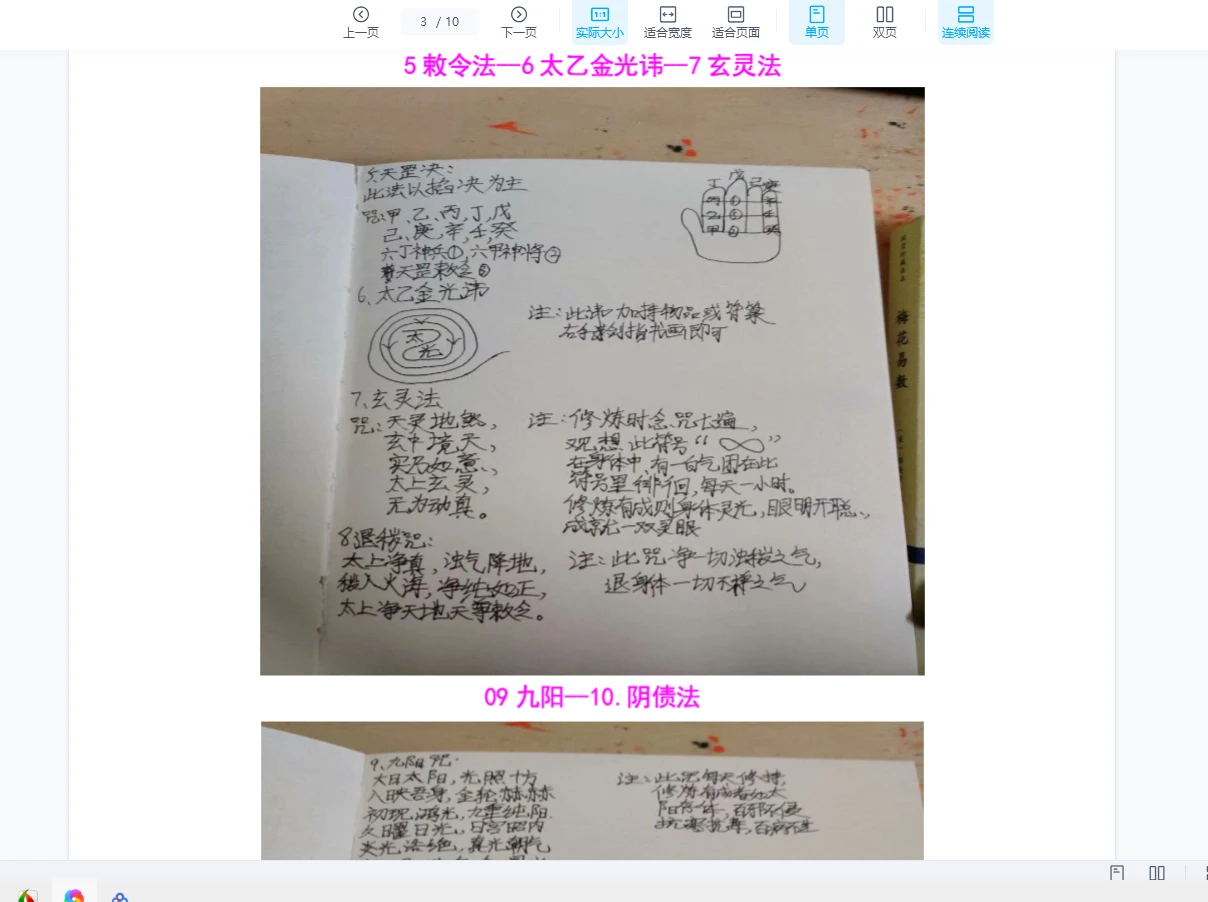 上一页
3 / 10
下一页
1:1
实际大小
适合宽度
适合页面
单页
双页
连续阅读
5 敕令法—6 太乙金光讳—7 玄灵法
5、天罡决:
此法以掐决为主
咒:甲、乙、丙、丁、戊
己、庚、辛、壬、癸
六丁神兵①,六甲神将②
天罡敕令③
丁 戊 己 庚
丙 ① 辛
乙 ③ 壬
甲 ② 癸
6、太乙金光讳
太
光
注:此讳加持物品或符箓
右手剑指书画即可
7、玄灵法
咒:天灵地然,
玄中境天,
实乃如意、,
太上玄灵,
无为动真。
注:修炼时念咒七遍,
观想此符号“∞”
在身体中,有一白气团在此
符号里徘徊,每天一小时。
修炼有成则身体灵光,眼明开聪、,
成就一双灵眼
8退秽咒:
太上净真,浊气降地,
秽入火海,净纯如正,
太上净天地天尊敕令。
注:此咒净一切浊秽之气,
退身体一切不祥之气
梅花易数
09 九阳—10.阴债法
9、九阳咒:
大日太阳,光照十方
入映吾身,金轮赫赫
初现鸿光,九重纯阳.
久曜日光、,日宫昭内
炎光
朝气
注:此咒每天修持,
修炼有成者如大
阳存一体,百邪不侵
抗寒抗毒,百病不生